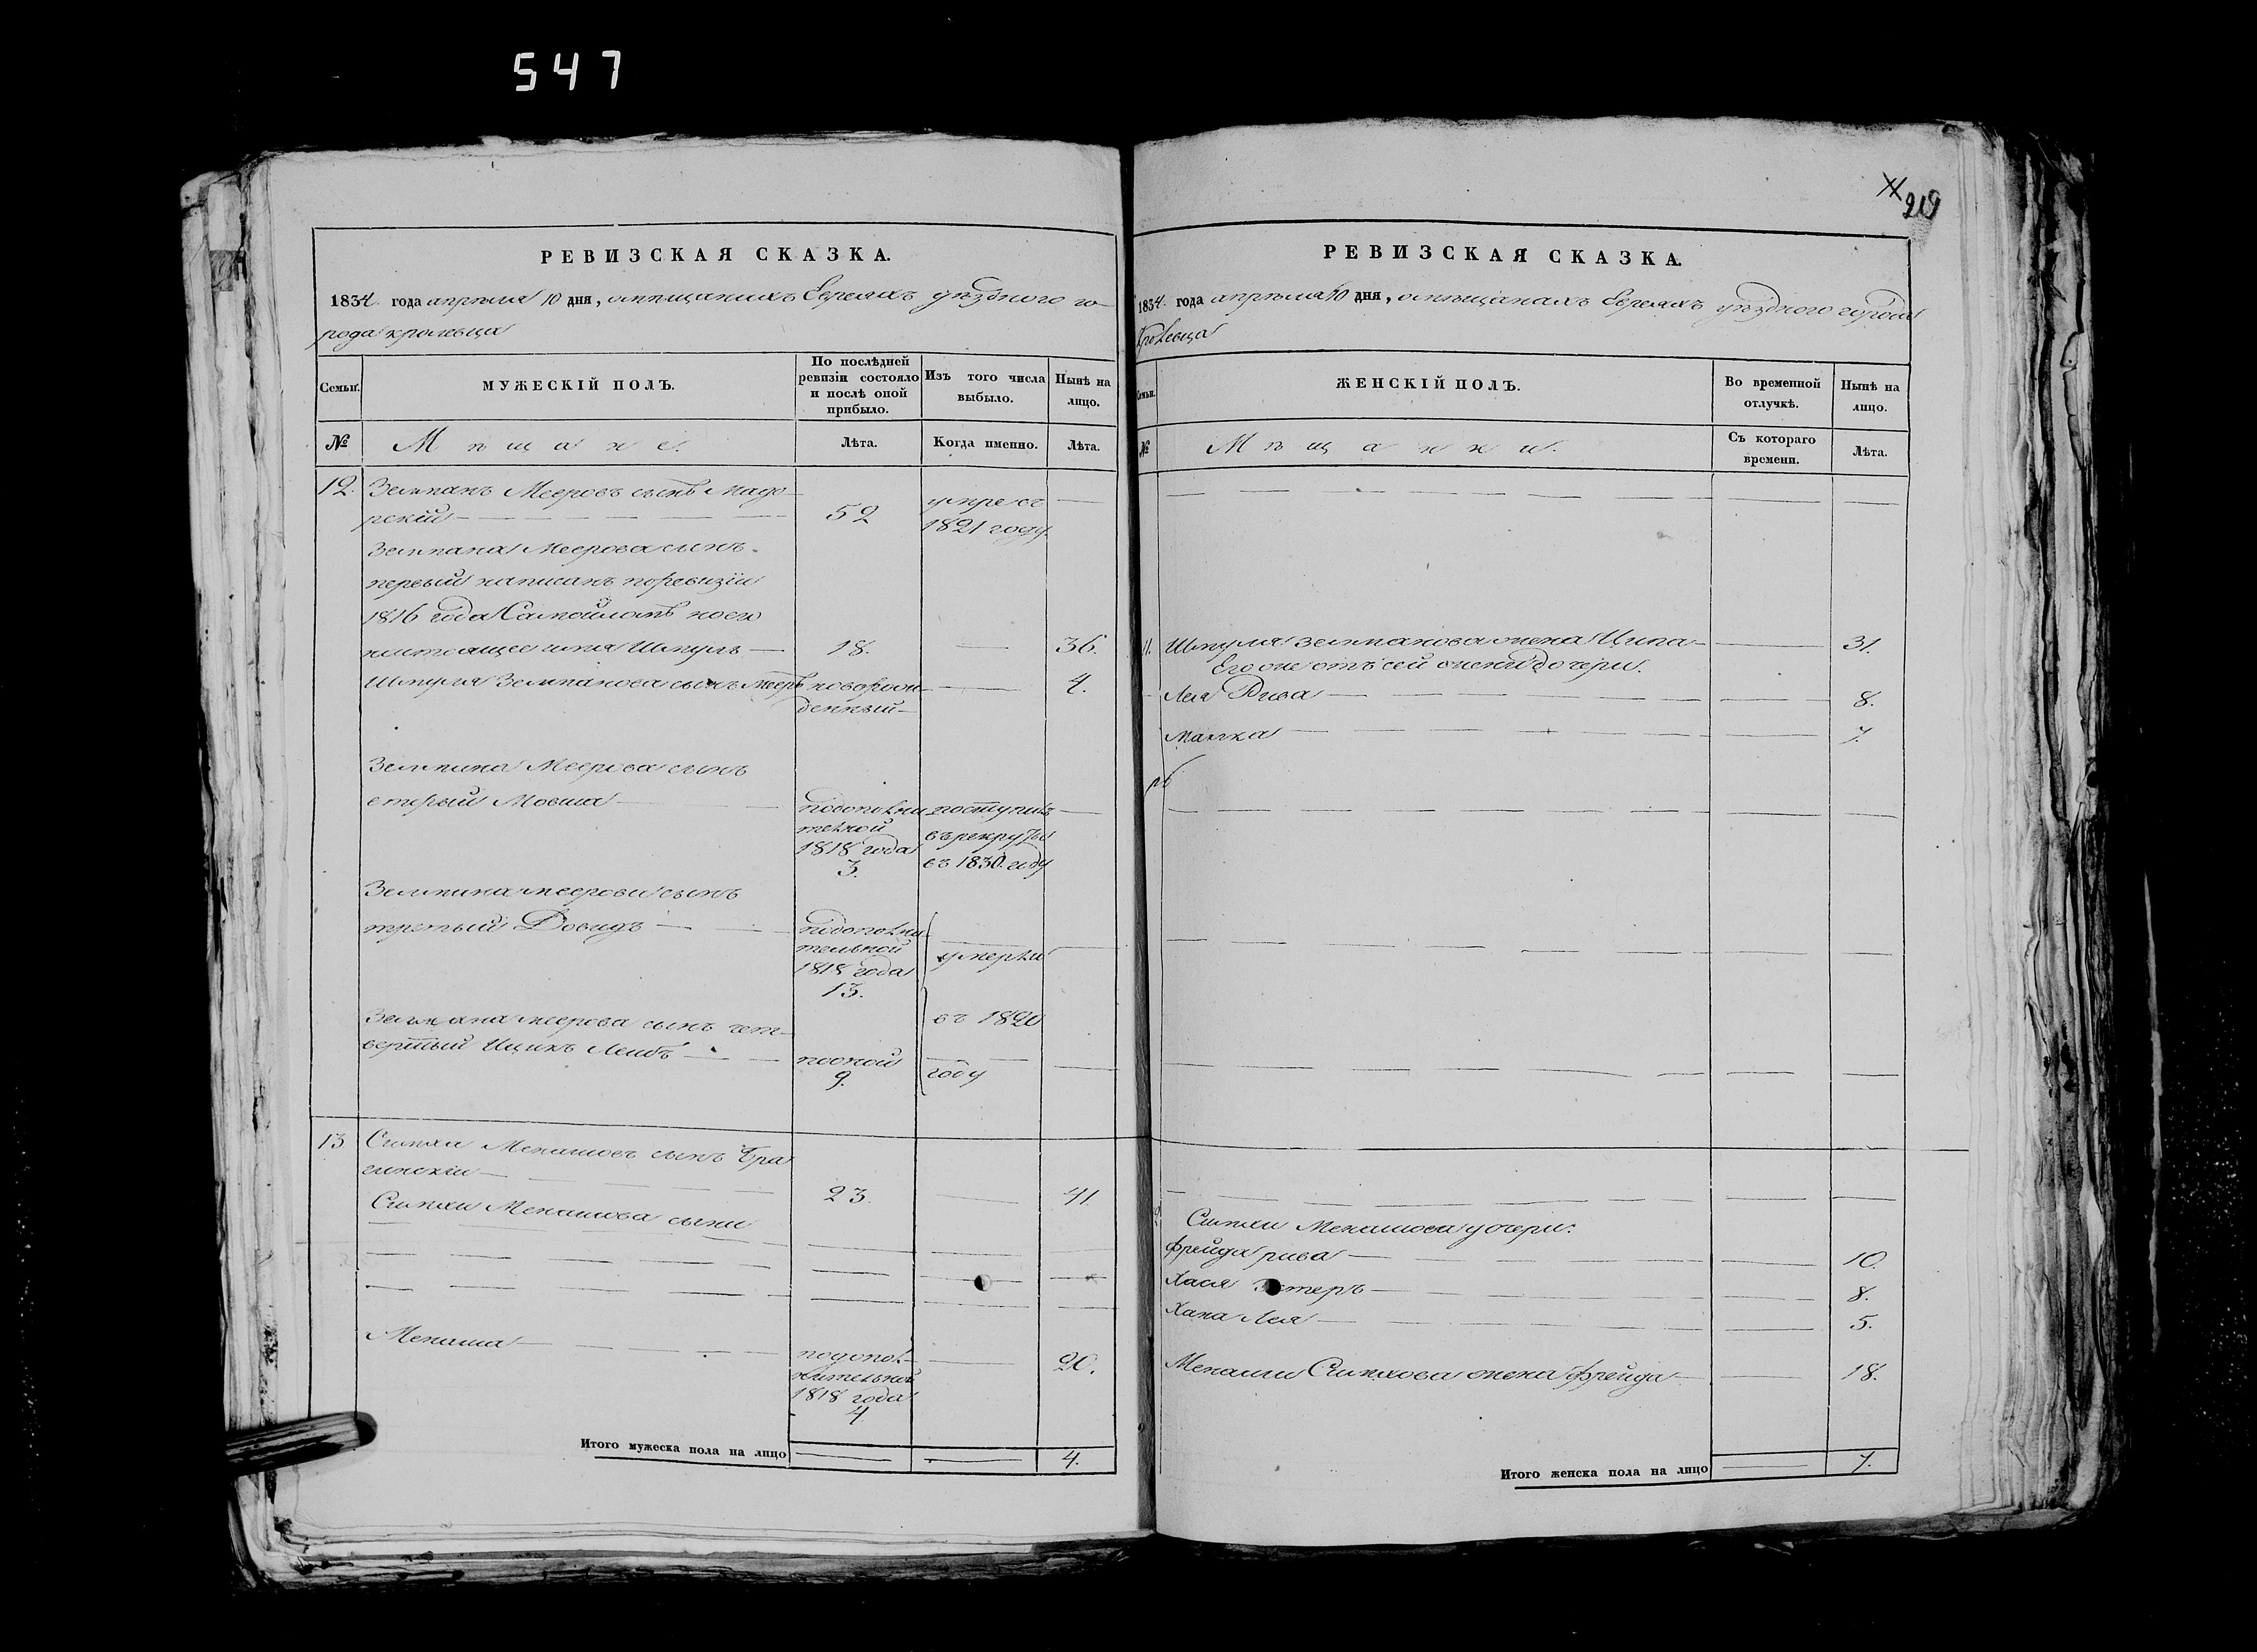 547
РЕВИЗСКАЯ СКАЗКА.
1834. года апреля 10 дня, о мещанахъ Евреяхъ уѣзднаго го-
рода кролевца
Семьи.
МУЖЕСКІЙ ПОЛЪ.
По послѣдней ревизіи состояло и послѣ оной прибыло.
Изъ того числа выбыло.
Нынѣ на лицо.
№
Мѣщане.
Лѣта.
Когда именно.
Лѣта.
12. Земпанъ Мееровъ сынъ
52
умре въ
1821 году
Земпана Меерова сынъ
первый написанъ поревизіи
1816 года Самойломъ коего
настоящее имя Шмуль
18.
36.
Шмуля Земпанова сынъ Меерь новорож-
денный
4.
Земпана Меерова сынъ
вторый Мовша
подополни
тельной
1818 года
3.
поступилъ
въ рекруты
въ 1830. году
Земпана меерова сынъ
третый Довидъ
подополни
тельной
1818 года
13.
умерли
Земпана меерова сынъ чет-
вертый Ицикъ Лейбъ
поомой
9.
въ 1820
году
13 Симхи Менашовъ сынъ Бра
гинскій
23.
41.
Симхи Менашова сыни
Менаша
подопол-
нительной
1818 года
4
20.
Итого мужеска пола на лицо
4.
219
РЕВИЗСКАЯ СКАЗКА.
1834. года апреля 10 дня, о мѣщанахъ Евреяхъ уѣзднаго города
Кролевца
Семьи.
ЖЕНСКІЙ ПОЛЪ.
Во временной отлучкѣ.
Нынѣ на лицо.
№
Мѣщанки.
Съ котораго времени.
Лѣта.
Шмуля Земпанова жена Ципа
31.
Его же отъ сей жены дочери.
Лея Рива
8.
Манка
7.
Симхи Менашова дочери.
Фрейда рива
10.
Хася Эстеръ
8.
Хана Лея
5.
Менаши Симхова жена Фрейда
18.
Итого женска пола на лицо
7.